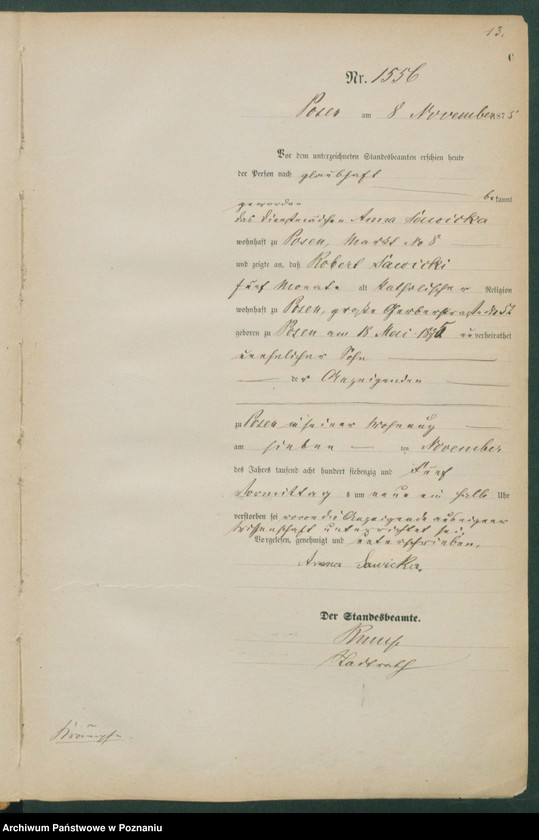 13.
C
Nr. 1556
Posen am 8 November 1875
Vor dem unterzeichneten Standesbeamten erschien heute
der Person nach glaubhaft
bekannt
geworden
das Dienstmädchen Anna Sawicka
wohnhaft zu Posen, Markt No 8
und zeigte an, daß Robert Sawicki
fünf Monate alt katholischer Religion
wohnhaft zu Posen, große Gerberstraße No 52
geboren zu Posen am 18 Mai 1875 unverheirathet
unehelicher Sohn
der Anzeigenden
zu Posen in seiner Wohnung
am sieben ten November
des Jahres tausend acht hundert siebenzig und fünf
Vormittag s um neun ein halb Uhr
verstorben sei wovon die Anzeigende aus eigener
Wissenschaft unterrichtet sei.
Vorgelesen, genehmigt und unterschrieben.
Anna Sawicka.
Der Standesbeamte.
Stadtrath
Krämpfe.
Archiwum Państwowe w Poznaniu